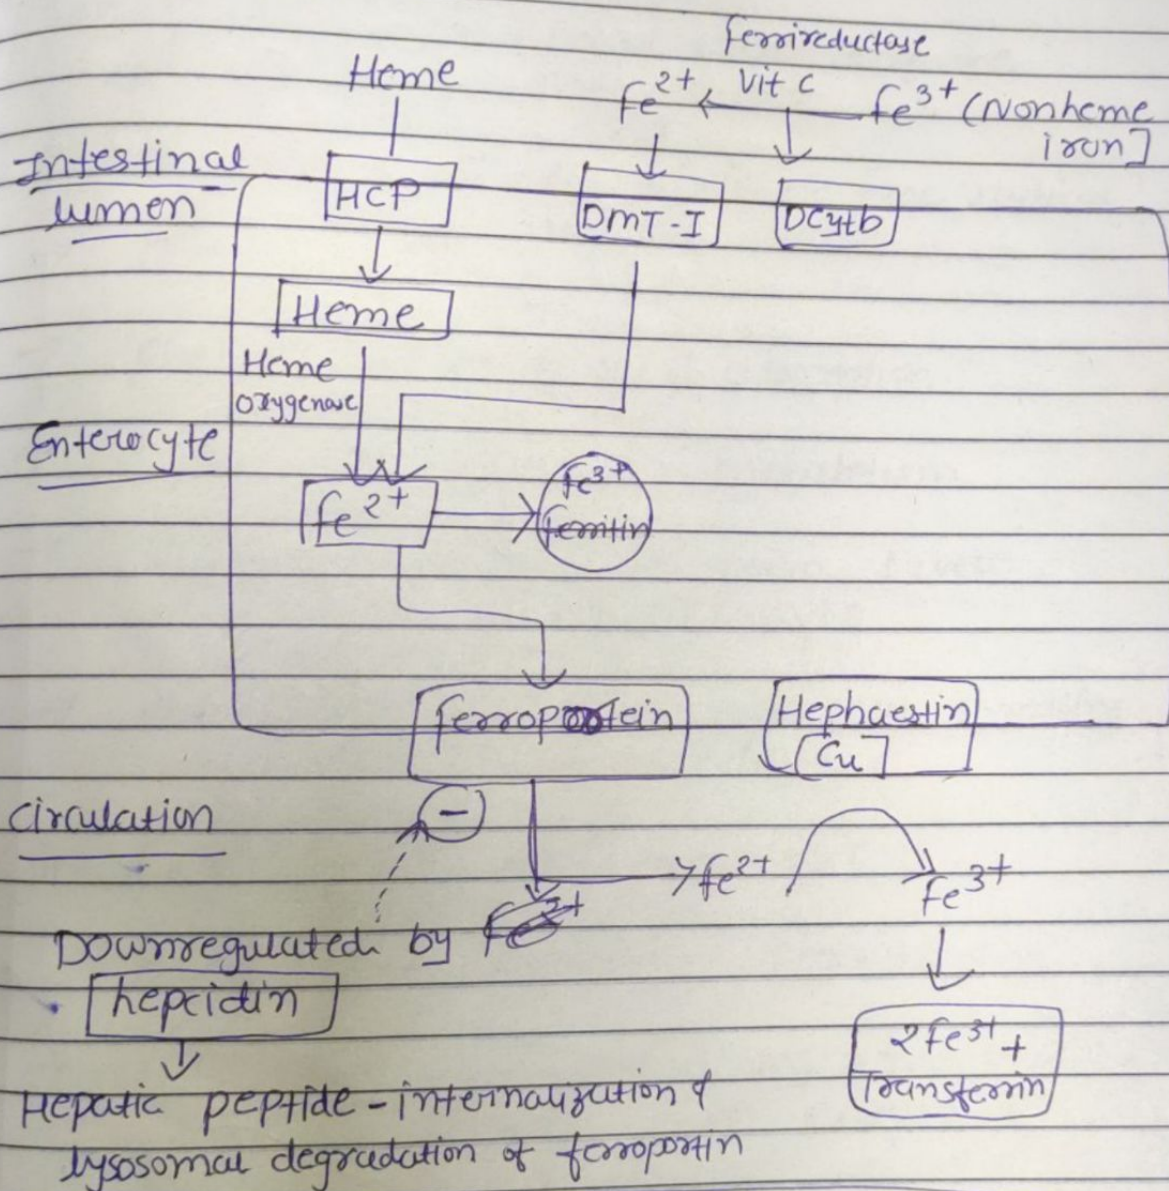 Ferrireductase
Heme
Fe2+ Vit C Fe3+ (Nonheme
iron]
Intestinal
lumen
HCP
DMT-I
DCytb
Heme
Heme
oxygenase
Enterocyte
Fe2+
Fe3+
Ferritin
Ferroportein
Hephaestin
[Cu]
Circulation
-
Fe2+
Fe3+
Downregulated by
hepcidin
2Fe3+ +
Transferrin
Hepatic peptide - internalization &
lysosomal degradation of ferroportin